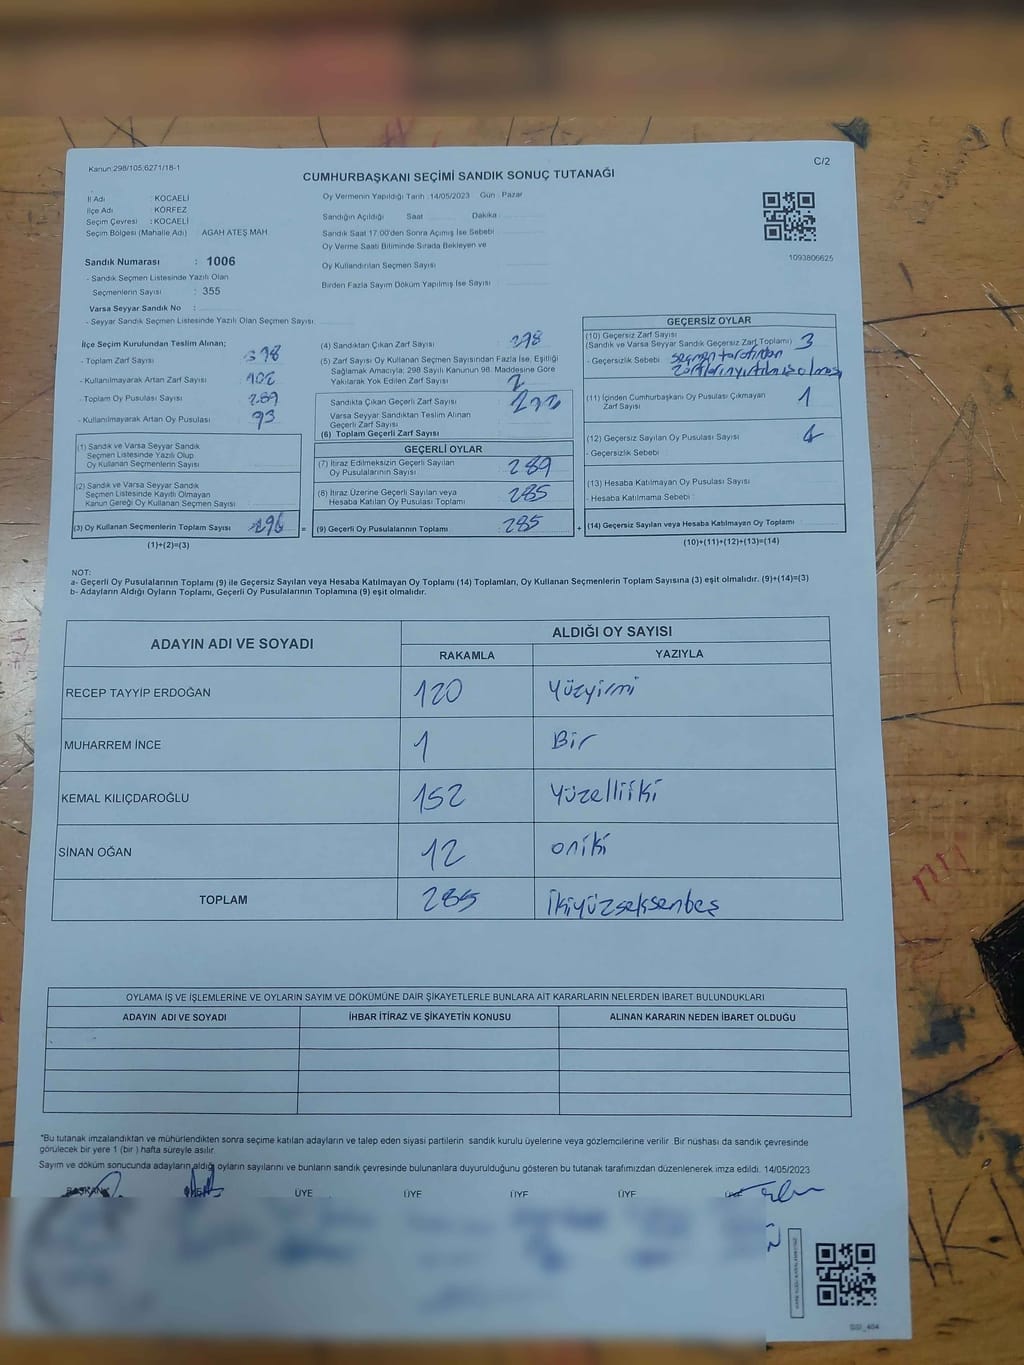 Kanun:298/105;6271/18-1
C/2
CUMHURBAŞKANI SEÇİMİ SANDIK SONUÇ TUTANAĞI
İl Adı : KOCAELİ
İlçe Adı : KÖRFEZ
Seçim Çevresi : KOCAELİ
Seçim Bölgesi (Mahalle Adı) : AGAH ATEŞ MAH
Sandık Numarası : 1006
- Sandık Seçmen Listesinde Yazılı Olan
Seçmenlerin Sayısı : 355
Varsa Seyyar Sandık No :
- Seyyar Sandık Seçmen Listesinde Yazılı Olan Seçmen Sayısı:
Oy Vermenin Yapıldığı Tarih :14/05/2023 Gün : Pazar
Sandığın Açıldığı Saat Dakika
Sandık Saat 17.00'den Sonra Açılmış İse Sebebi
Oy Verme Saati Bitiminde Sırada Bekleyen ve
Oy Kullandırılan Seçmen Sayısı
Birden Fazla Sayım Döküm Yapılmış İse Sayısı
1093806625
İlçe Seçim Kurulundan Teslim Alınan;
- Toplam Zarf Sayısı :
- Kullanılmayarak Artan Zarf Sayısı :
- Toplam Oy Pusulası Sayısı :
- Kullanılmayarak Artan Oy Pusulası : 93
(1) Sandık ve Varsa Seyyar Sandık
Seçmen Listesinde Yazılı Olup
Oy Kullanan Seçmenlerin Sayısı
(2) Sandık ve Varsa Seyyar Sandık
Seçmen Listesinde Kayıtlı Olmayan
Kanun Gereği Oy Kullanan Seçmen Sayısı
(3) Oy Kullanan Seçmenlerin Toplam Sayısı 296
(1)+(2)=(3)
(4) Sandıktan Çıkan Zarf Sayısı : 298
(5) Zarf Sayısı Oy Kullanan Seçmen Sayısından Fazla İse, Eşitliği
Sağlamak Amacıyla; 298 Sayılı Kanunun 98. Maddesine Göre
Yakılarak Yok Edilen Zarf Sayısı : 2
Sandıkta Çıkan Geçerli Zarf Sayısı :
Varsa Seyyar Sandıktan Teslim Alınan
Geçerli Zarf Sayısı
(6) Toplam Geçerli Zarf Sayısı
GEÇERLİ OYLAR
(7) İtiraz Edilmeksizin Geçerli Sayılan
Oy Pusulalarının Sayısı : 289
(8) İtiraz Üzerine Geçerli Sayılan veya
Hesaba Katılan Oy Pusulası Toplamı : 285
= (9) Geçerli Oy Pusulalarının Toplamı : 285
GEÇERSİZ OYLAR
(10) Geçersiz Zarf Sayısı
(Sandık ve Varsa Seyyar Sandık Geçersiz Zarf Toplamı) : 3
- Geçersizlik Sebebi : seçmen tarafından
zarfların yırtılmış olması
(11) İçinden Cumhurbaşkanı Oy Pusulası Çıkmayan
Zarf Sayısı : 1
(12) Geçersiz Sayılan Oy Pusulası Sayısı :
- Geçersizlik Sebebi :
(13) Hesaba Katılmayan Oy Pusulası Sayısı :
- Hesaba Katılmama Sebebi :
+ (14) Geçersiz Sayılan veya Hesaba Katılmayan Oy Toplamı
(10)+(11)+(12)+(13)=(14)
NOT:
a- Geçerli Oy Pusulalarının Toplamı (9) ile Geçersiz Sayılan veya Hesaba Katılmayan Oy Toplamı (14) Toplamları, Oy Kullanan Seçmenlerin Toplam Sayısına (3) eşit olmalıdır. (9)+(14)=(3)
b- Adayların Aldığı Oyların Toplamı, Geçerli Oy Pusulalarının Toplamına (9) eşit olmalıdır.
ADAYIN ADI VE SOYADI ALDIĞI OY SAYISI
RAKAMLA YAZIYLA
RECEP TAYYİP ERDOĞAN 120 Yüzyirmi
MUHARREM İNCE 1 Bir
KEMAL KILIÇDAROĞLU 152 Yüzelliiki
SİNAN OĞAN 12 oniki
TOPLAM 285 İkiyüzseksenbeş
OYLAMA İŞ VE İŞLEMLERİNE VE OYLARIN SAYIM VE DÖKÜMÜNE DAİR ŞİKAYETLERLE BUNLARA AİT KARARLARIN NELERDEN İBARET BULUNDUKLARI
ADAYIN ADI VE SOYADI İHBAR İTİRAZ VE ŞİKAYETİN KONUSU ALINAN KARARIN NEDEN İBARET OLDUĞU
*Bu tutanak imzalandıktan ve mühürlendikten sonra seçime katılan adayların ve talep eden siyasi partilerin sandık kurulu üyelerine veya gözlemcilerine verilir. Bir nüshası da sandık çevresinde
görülecek bir yere 1 (bir ) hafta süreyle asılır.
Sayım ve döküm sonucunda adayların aldığı oyların sayılarını ve bunların sandık çevresinde bulunanlara duyurulduğunu gösteren bu tutanak tarafımızdan düzenlenerek imza edildi. 14/05/2023
BAŞKAN ÜYE ÜYE ÜYE ÜYE ÜYE ÜYE